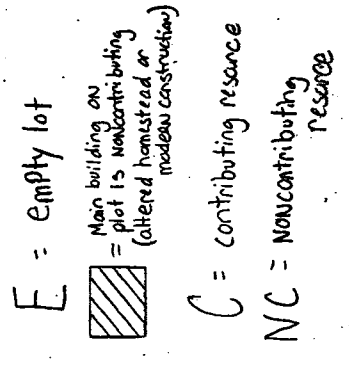 E = empty lot
= Main building on
plot is noncontributing
(altered homestead or
modern construction)
C = contributing resource
NC = Noncontributing
resource